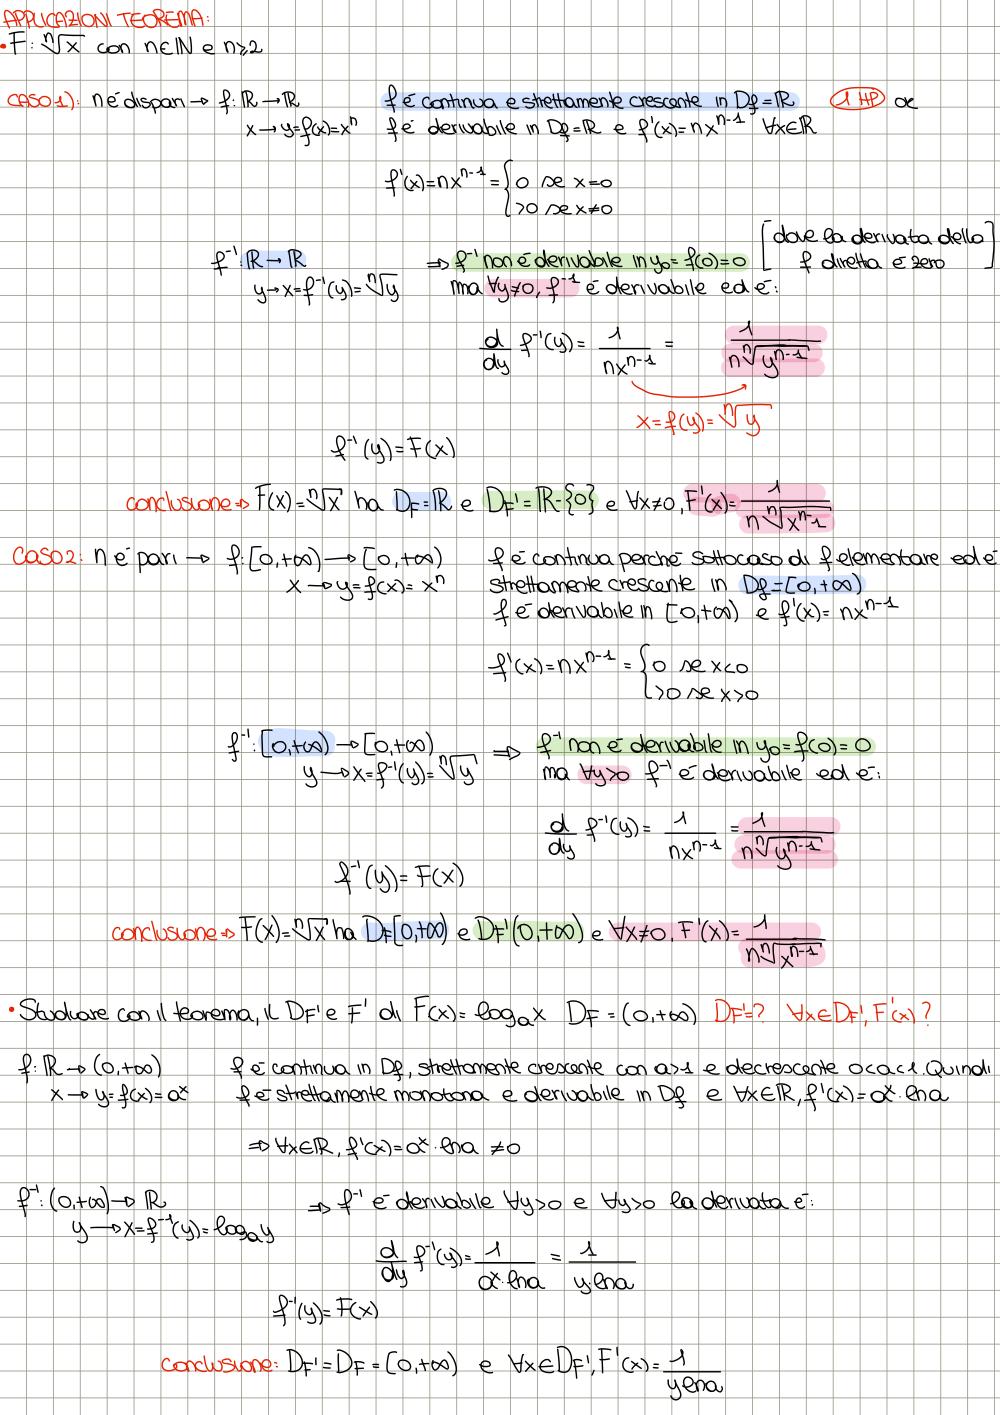 APPLICAZIONI TEOREMA:
• F: ⁿ√x con n∈ℕ e n≥2
CASO 1): n è dispari → f: ℝ→ℝ f è continua e strettamente crescente in Df=ℝ 1 HP ok
x→y=f(x)=xⁿ f è derivabile in Df=ℝ e f'(x)=nxⁿ⁻¹ ∀x∈ℝ
f'(x)=nxⁿ⁻¹ = { 0 se x=0
>0 se x≠0
f⁻¹: ℝ→ℝ ⇒ f⁻¹ non è derivabile in y₀=f(0)=0 [dove la derivata della
y→x=f⁻¹(y)=ⁿ√y ma ∀y≠0, f⁻¹ è derivabile ed è: f diretta è zero]
d/dy f⁻¹(y)= 1/nxⁿ⁻¹ = 1/n ⁿ√yⁿ⁻¹
x=f(y)=ⁿ√y
f⁻¹(y)=F(x)
conclusione ⇒ F(x)=ⁿ√x ha DF=ℝ e DF'=ℝ-{0} e ∀x≠0, F'(x)= 1/n ⁿ√xⁿ⁻¹
CASO 2: n è pari → f: [0,+∞) → [0,+∞) f è continua perché sottocaso di f elementare ed è
x → y=f(x)=xⁿ strettamente crescente in Df=[0,+∞)
f è derivabile in [0,+∞) e f'(x)=nxⁿ⁻¹
f'(x)=nxⁿ⁻¹ = { 0 se x<0
>0 se x>0
f⁻¹: [0,+∞) → [0,+∞) ⇒ f⁻¹ non è derivabile in y₀=f(0)=0
y→x=f⁻¹(y)=ⁿ√y ma ∀y>0 f⁻¹ è derivabile ed è:
d/dy f⁻¹(y)= 1/nxⁿ⁻¹ = 1/n ⁿ√yⁿ⁻¹
f⁻¹(y)=F(x)
conclusione ⇒ F(x)=ⁿ√x ha DF[0,+∞) e DF'(0,+∞) e ∀x≠0, F'(x)= 1/n ⁿ√xⁿ⁻¹
• Studiare con il teorema, il DF' e F' di F(x)=logₐx DF=(0,+∞) DF'=? ∀x∈DF', F'(x)?
f: ℝ→(0,+∞) f è continua in Df, strettamente crescente con a>1 e decrescente 0<a<1. Quindi
x→y=f(x)=aˣ f è strettamente monotona e derivabile in Df e ∀x∈ℝ, f'(x)=aˣ·lna
⇒ ∀x∈ℝ, f'(x)=aˣ·lna ≠0
f⁻¹: (0,+∞)→ℝ ⇒ f⁻¹ è derivabile ∀y>0 e ∀y>0 la derivata è:
y→x=f⁻¹(y)=logₐy
d/dy f⁻¹(y)= 1/aˣ·lna = 1/y·lna
f⁻¹(y)=F(x)
conclusione: DF'=DF=(0,+∞) e ∀x∈DF', F'(x)= 1/y lna